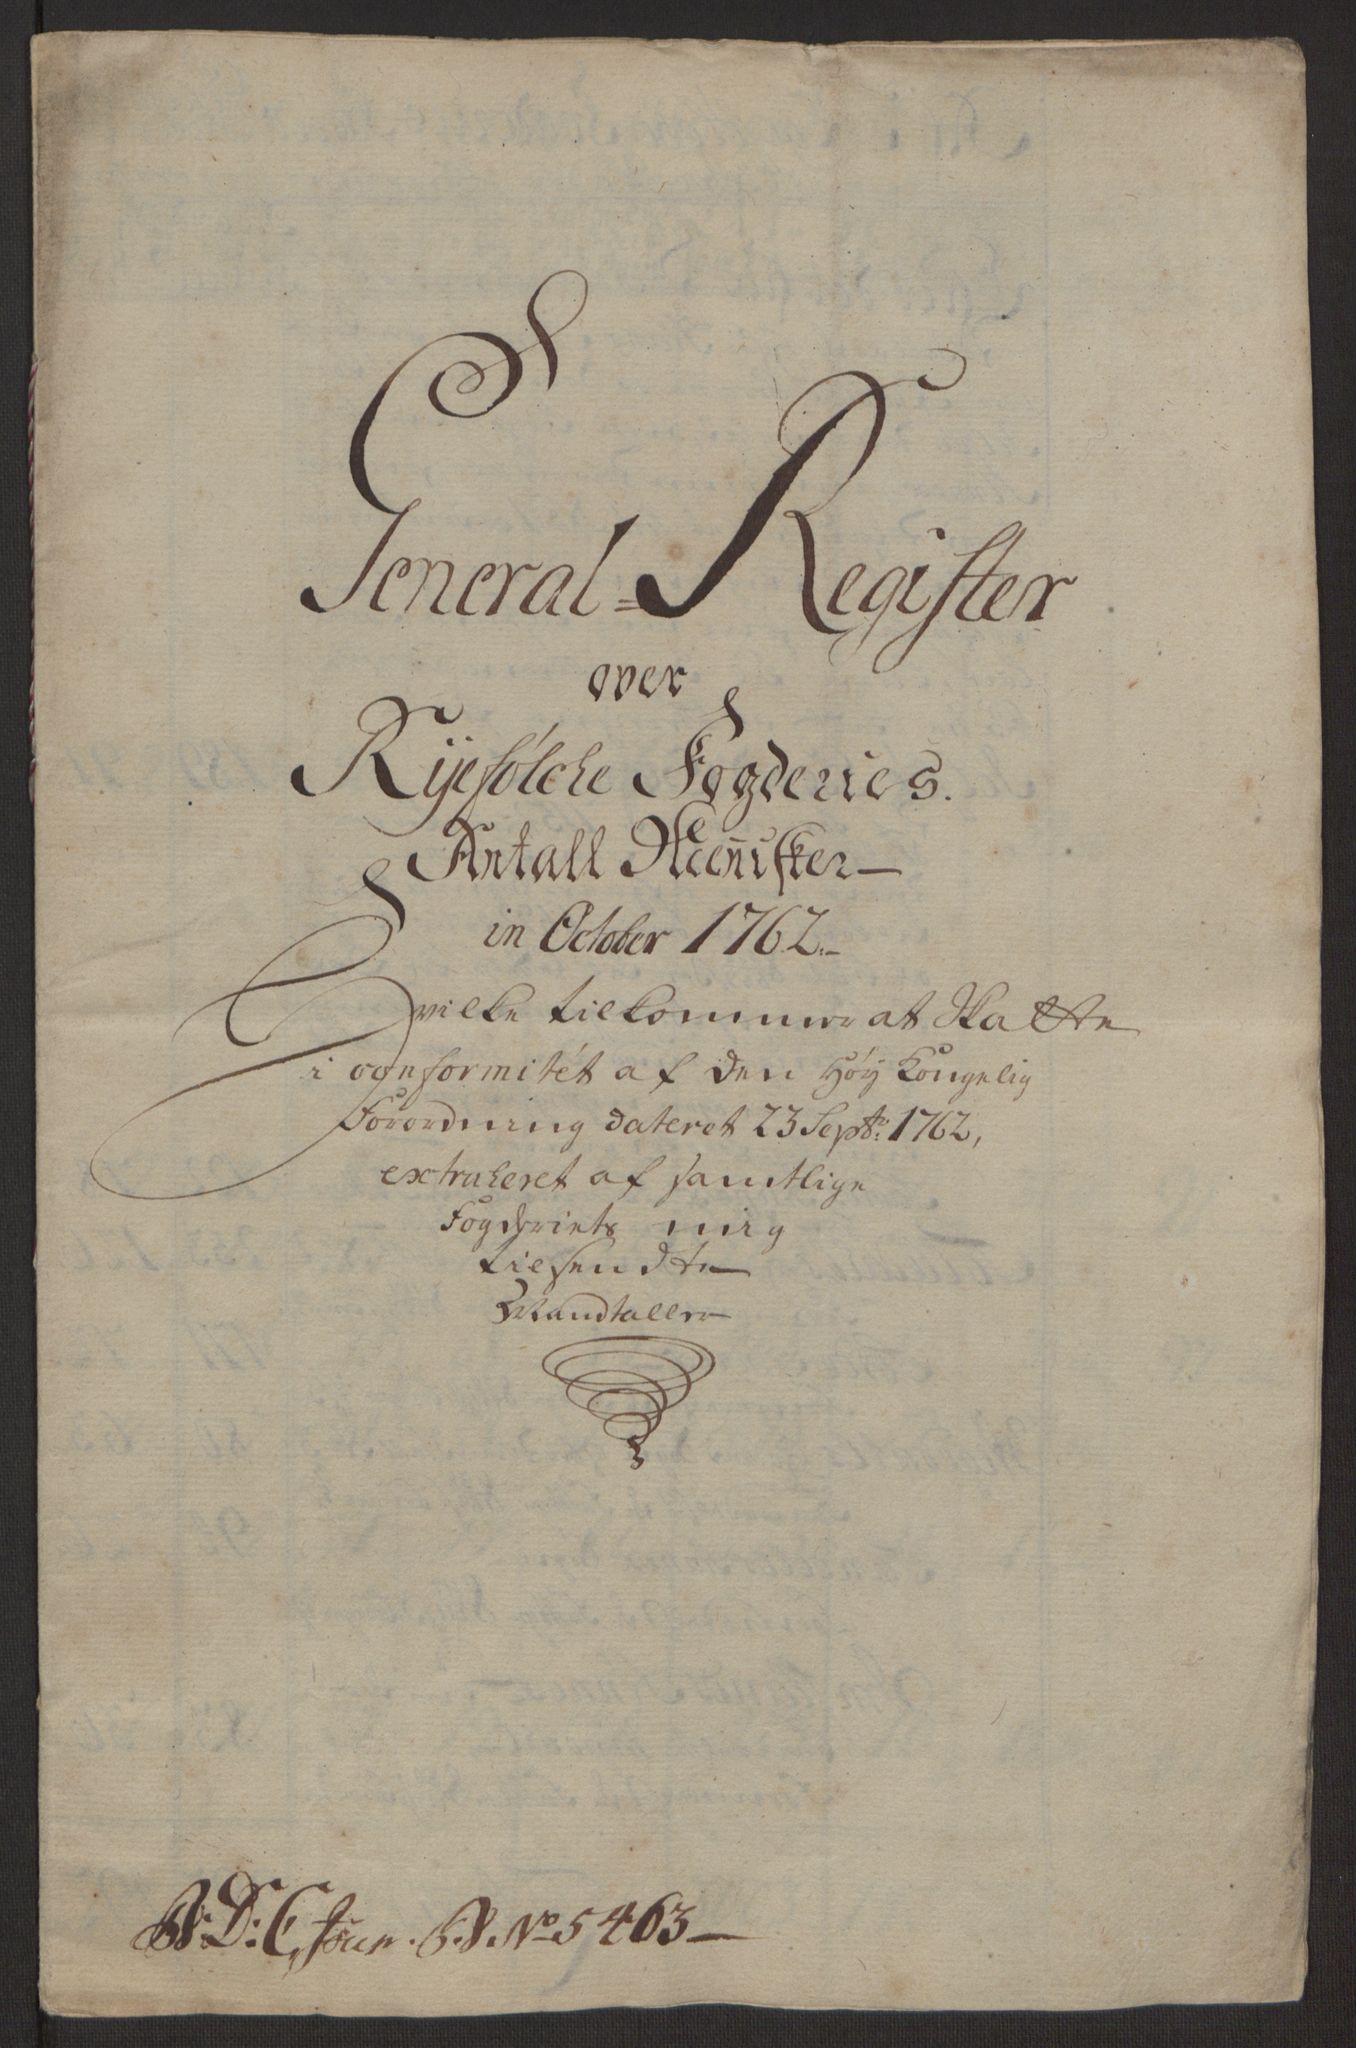 General=Register
over
Ryefölche Fogderies.
Antall Menisker
in October 1762.
Hvilke tilkommer at Skatte
i conformitét af den Höy Kongelig
Forordning dateret 23 Septb: 1762,
extraheret af samtlige
Fogderiets mig
tilsendte
Mandtaller
D: C. Jour. No 5463